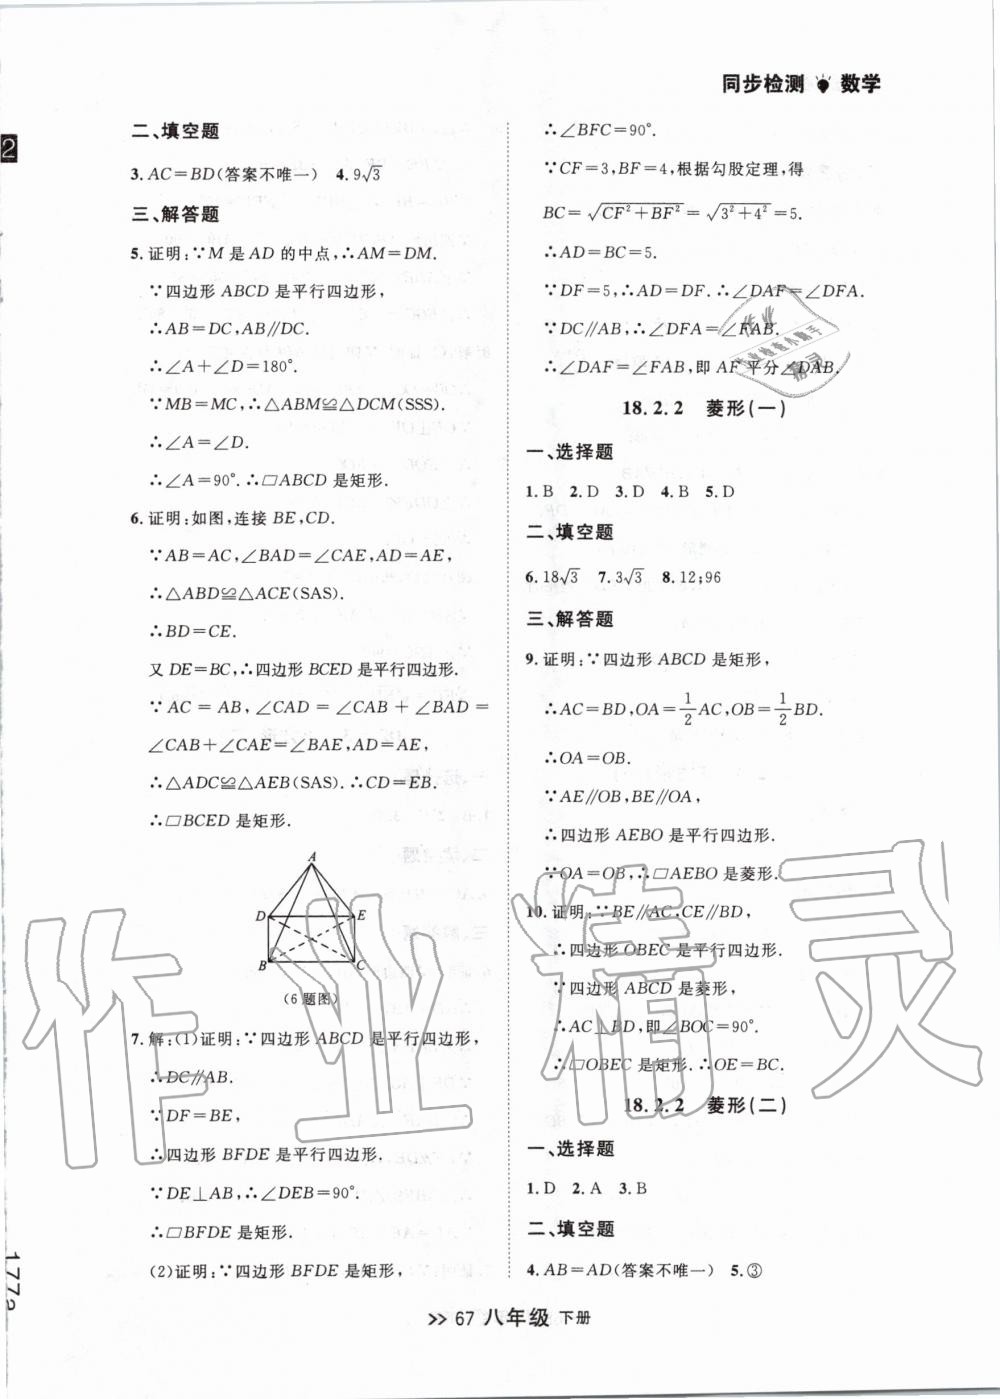 同步检测 数学
二、填空题
3. AC=BD(答案不唯一) 4. 9√3
三、解答题
5. 证明:∵M 是 AD 的中点,∴AM=DM.
∵四边形 ABCD 是平行四边形,
∴AB=DC,AB∥DC.
∴∠A+∠D=180°.
∵MB=MC,∴△ABM≌△DCM(SSS).
∴∠A=∠D.
∴∠A=90°.∴□ABCD 是矩形.
6. 证明:如图,连接 BE,CD.
∵AB=AC,∠BAD=∠CAE,AD=AE,
∴△ABD≌△ACE(SAS).
∴BD=CE.
又 DE=BC,∴四边形 BCED 是平行四边形.
∵AC = AB,∠CAD = ∠CAB + ∠BAD =
∠CAB+∠CAE=∠BAE,AD=AE,
∴△ADC≌△AEB(SAS).∴CD=EB.
∴□BCED 是矩形.
A
D E
B C
(6题图)
7. 解:(1)证明:∵四边形 ABCD 是平行四边形,
∴DC∥AB.
∵DF=BE,
∴四边形 BFDE 是平行四边形.
∵DE⊥AB,∴∠DEB=90°.
∴□BFDE 是矩形.
(2)证明:∵四边形 BFDE 是矩形,
∴∠BFC=90°.
∵CF=3,BF=4,根据勾股定理,得
BC=√(CF²+BF²)=√(3²+4²)=5.
∴AD=BC=5.
∵DF=5,∴AD=DF.∴∠DAF=∠DFA.
∵DC∥AB,∴∠DFA=∠FAB.
∴∠DAF=∠FAB,即 AF 平分∠DAB.
18.2.2 菱形(一)
一、选择题
1. B 2. D 3. D 4. B 5. D
二、填空题
6. 18√3 7. 3√3 8. 12;96
三、解答题
9. 证明:∵四边形 ABCD 是矩形,
∴AC=BD,OA=1/2AC,OB=1/2BD.
∴OA=OB.
∵AE∥OB,BE∥OA,
∴四边形 AEBO 是平行四边形.
∵OA=OB,∴□AEBO 是菱形.
10. 证明:∵BE∥AC,CE∥BD,
∴四边形 OBEC 是平行四边形.
∵四边形 ABCD 是菱形,
∴AC⊥BD,即∠BOC=90°.
∴□OBEC 是矩形.∴OE=BC.
18.2.2 菱形(二)
一、选择题
1. D 2. A 3. B
二、填空题
4. AB=AD(答案不唯一) 5. ③
>> 67 八年级 下册
作业精灵